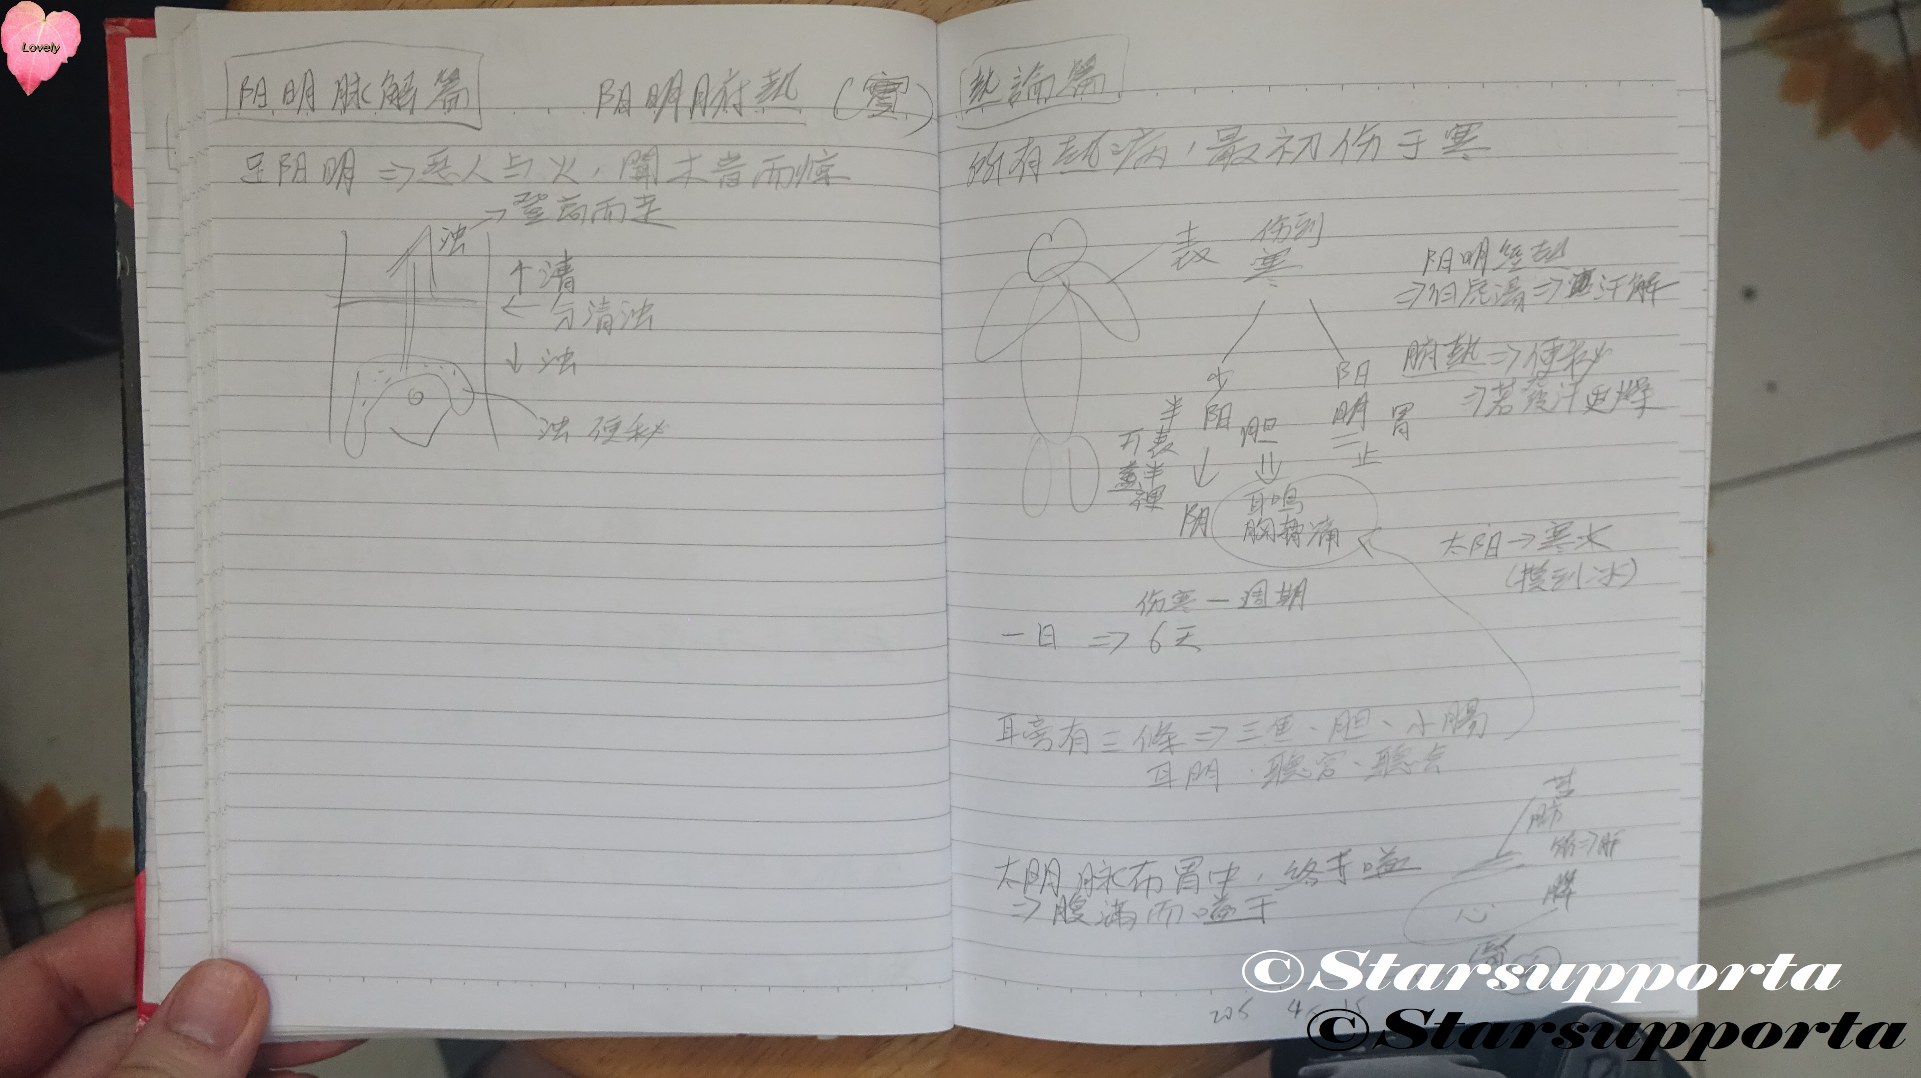 Lovely
阳明脉解篇
阳明腑熱 (實)
足阳明 => 恶人与火，聞木音而惊
浊 => 登高而走
↑清
← 分清浊
↓浊
浊 便秘
热論篇
所有热病，最初伤于寒
表
伤到
寒
阳明经热
=> 白虎湯 => 汗解
腑熱 => 便秘
=> 若發汗更燥
少阳
胆
半表半裡
阳明
胃
止
阴
耳鳴
胸 痛
太阳 → 寒水
(摸到冰)
伤寒一周期
一日 => 6天
耳旁有三條 => 三焦、胆、小腸
耳門、聽宮、聽会
肺
=> 肝
脾
心
太阴脉布胃中，终于嗌
=> 腹滿而嗌干
©Starsupporta
©Starsupporta